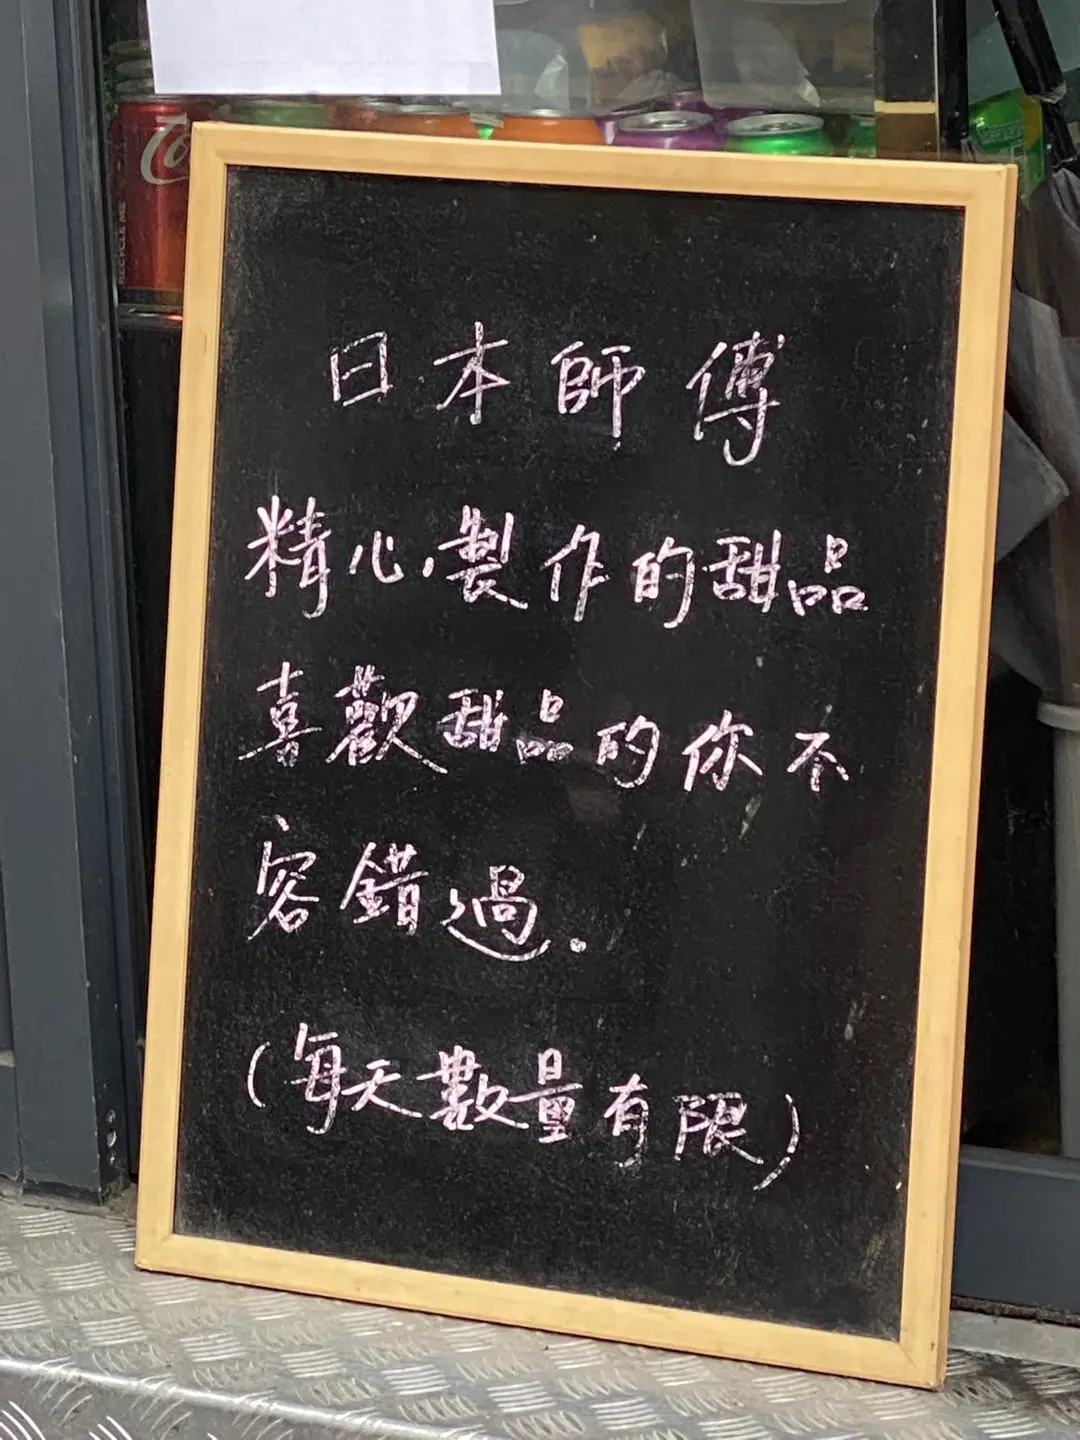 Co
RECYCLE ME
日本師傅
精心製作的甜品
喜歡甜品的你不
容錯過.
(每天數量有限)